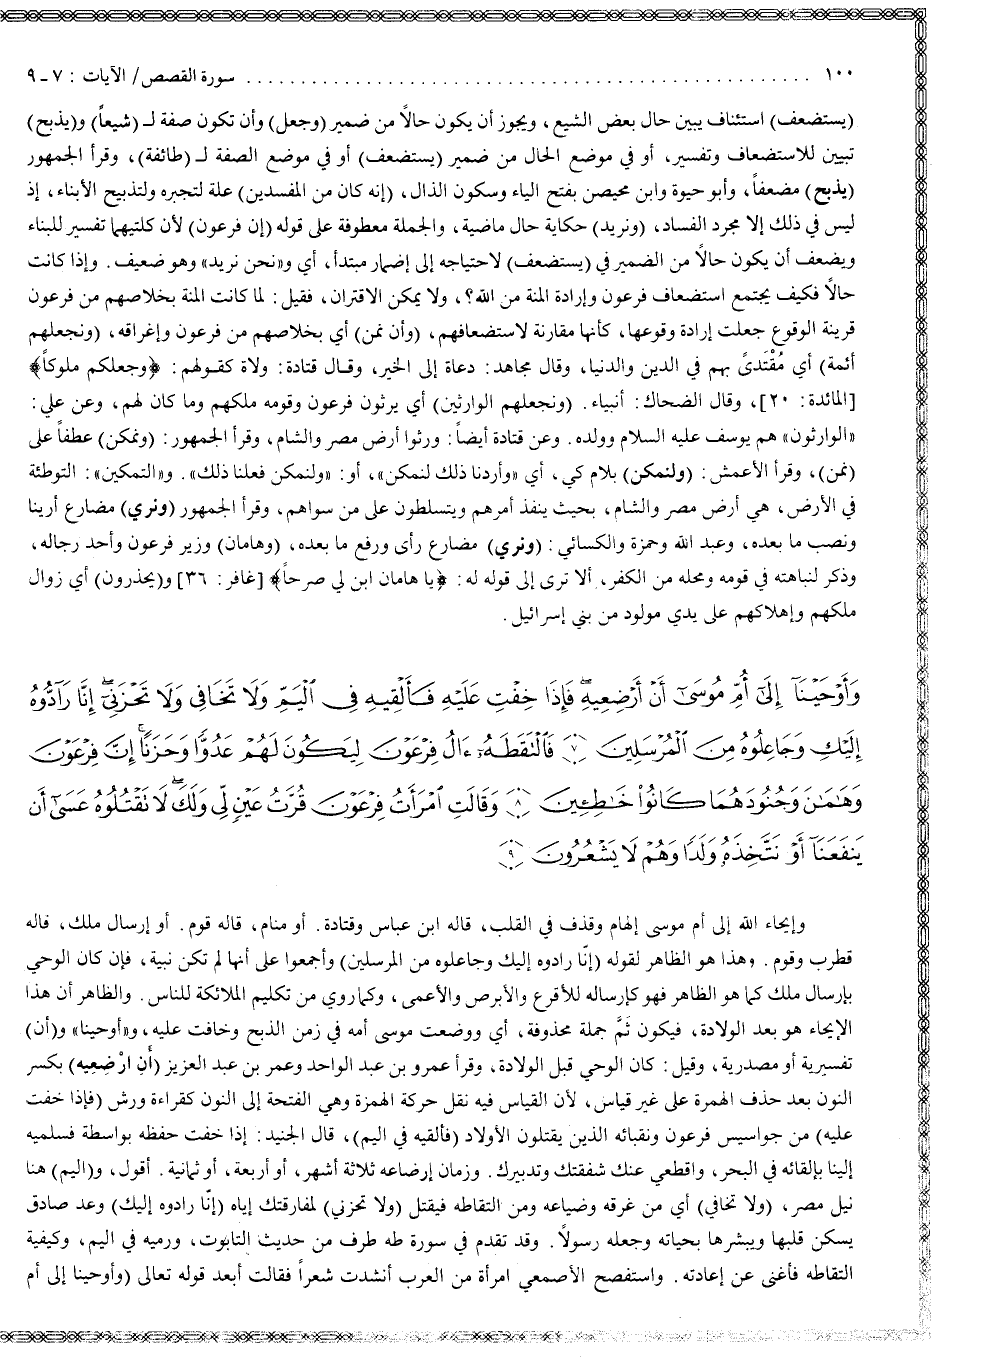 ١٠٠ . . . . . . . . . . . . . . . . . . . . . . . . . . . . . . . . . . . . . . . . . . . . . . . . . . . سورة القصص/ الآيات : ٧ - ٩
(يستضعف) استئناف يبين حال بعض الشيع، ويجوز أن يكون حالاً من ضمير (وجعل) وأن تكون صفة لـ (شيعاً) و(يذبح)
تبيين للاستضعاف وتفسير، أو في موضع الحال من ضمير (يستضعف) أو في موضع الصفة لـ (طائفة)، وقرأ الجمهور
(يذبح) مضعفاً، وأبو حيوة وابن محيصن بفتح الياء وسكون الذال، (إنه كان من المفسدين) علة لتجبره ولتذبيح الأبناء، إذ
ليس في ذلك إلا مجرد الفساد، (ونريد) حكاية حال ماضية، والجملة معطوفة على قوله (إن فرعون) لأن كلتيهما تفسير للبناء
ويضعف أن يكون حالاً من الضمير في (يستضعف) لاحتياجه إلى إضمار مبتدأ، أي و«نحن نريد» وهو ضعيف. وإذا كانت
حالاً فكيف يجتمع استضعاف فرعون وإرادة المنة من الله؟، ولا يمكن الاقتران، فقيل: لما كانت المنة بخلاصهم من فرعون
قرينة الوقوع جعلت إرادة وقوعها، كأنها مقارنة لاستضعافهم، (وأن نمن) أي بخلاصهم من فرعون وإغراقه، (ونجعلهم
أئمة) أي مُقْتَدىً بهم في الدين والدنيا، وقال مجاهد: دعاة إلى الخير، وقال قتادة: ولاة كقولهم: ﴿وجعلكم ملوكاً﴾
[المائدة: ٢٠]، وقال الضحاك: أنبياء. (ونجعلهم الوارثين) أي يرثون فرعون وقومه ملكهم وما كان لهم، وعن علي:
«الوارثون» هم يوسف عليه السلام وولده. وعن قتادة أيضاً: ورثوا أرض مصر والشام، وقرأ الجمهور: (ونمكن) عطفاً على
(نمن)، وقرأ الأعمش: (ولنمكن) بلام كي، أي «وأردنا ذلك لنمكن»، أو: «ولنمكن فعلنا ذلك». و«التمكين»: التوطئة
في الأرض، هي أرض مصر والشام، بحيث ينفذ أمرهم ويتسلطون على من سواهم، وقرأ الجمهور (ونري) مضارع أرينا
ونصب ما بعده، وعبد الله وحمزة والكسائي: (ونري) مضارع رأى ورفع ما بعده، (وهامان) وزير فرعون وأحد رجاله،
وذكر لنباهته في قومه ومحله من الكفر، ألا ترى إلى قوله له: ﴿يا هامان ابن لي صرحاً﴾ [غافر: ٣٦] و(يحذرون) أي زوال
ملكهم وإهلاكهم على يدي مولود من بني إسرائيل.
وَأَوْحَيْنَآ إِلَىٰٓ أُمِّ مُوسَىٰٓ أَنْ أَرْضِعِيهِ ۖ فَإِذَا خِفْتِ عَلَيْهِ فَأَلْقِيهِ فِى ٱلْيَمِّ وَلَا تَخَافِى وَلَا تَحْزَنِىٓ ۖ إِنَّا رَآدُّوهُ
إِلَيْكِ وَجَاعِلُوهُ مِنَ ٱلْمُرْسَلِينَ ﴿٧﴾ فَٱلْتَقَطَهُۥٓ ءَالُ فِرْعَوْنَ لِيَكُونَ لَهُمْ عَدُوًّا وَحَزَنًا ۗ إِنَّ فِرْعَوْنَ
وَهَٰمَٰنَ وَجُنُودَهُمَا كَانُوا۟ خَٰطِـِٔينَ ﴿٨﴾ وَقَالَتِ ٱمْرَأَتُ فِرْعَوْنَ قُرَّتُ عَيْنٍ لِّى وَلَكَ ۖ لَا تَقْتُلُوهُ عَسَىٰٓ أَن
يَنفَعَنَآ أَوْ نَتَّخِذَهُۥ وَلَدًا وَهُمْ لَا يَشْعُرُونَ ﴿٩﴾
وإيحاء الله إلى أم موسى إلهام وقذف في القلب، قاله ابن عباس وقتادة. أو منام، قاله قوم. أو إرسال ملك، قاله
قطرب وقوم. وهذا هو الظاهر لقوله (إنّا رادوه إليك وجاعلوه من المرسلين) وأجمعوا على أنها لم تكن نبية، فإن كان الوحي
بإرسال ملك كما هو الظاهر فهو كإرساله للأقرع والأبرص والأعمى، وكما روي من تكليم الملائكة للناس. والظاهر أن هذا
الإيحاء هو بعد الولادة، فيكون ثَمَّ جملة محذوفة، أي ووضعت موسى أمه في زمن الذبح وخافت عليه، و«أوحينا» و(أن)
تفسيرية أو مصدرية، وقيل: كان الوحي قبل الولادة، وقرأ عمرو بن عبد الواحد وعمر بن عبد العزيز (أَنِ ارْضِعِيه) بكسر
النون بعد حذف الهمزة على غير قياس، لأن القياس فيه نقل حركة الهمزة وهي الفتحة إلى النون كقراءة ورش (فإذا خفت
عليه) من جواسيس فرعون ونقبائه الذين يقتلون الأولاد (فألقيه في اليم)، قال الجنيد: إذا خفت حفظه بواسطة فسلميه
إلينا بإلقائه في البحر، واقطعي عنك شفقتك وتدبيرك. وزمان إرضاعه ثلاثة أشهر، أو أربعة، أو ثمانية. أقول، و(اليم) هنا
نيل مصر، (ولا تخافي) أي من غرقه وضياعه ومن التقاطه فيقتل (ولا تحزني) لمفارقتك إياه (إنّا رادوه إليك) وعد صادق
يسكن قلبها ويبشرها بحياته وجعله رسولاً. وقد تقدم في سورة طه طرف من حديث التابوت، ورميه في اليم، وكيفية
التقاطه فأغنى عن إعادته. واستفصح الأصمعي امرأة من العرب أنشدت شعراً فقالت أبعد قوله تعالى (وأوحينا إلى أم